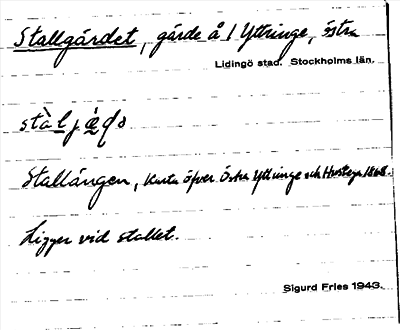 Stallgärdet, gärde å 1 Yttringe, östra
Lidingö stad. Stockholms län.
Stallängen, Karta öfver Östra Yttringe och 1868.
Ligger vid stallet.
Sigurd Fries 1943.